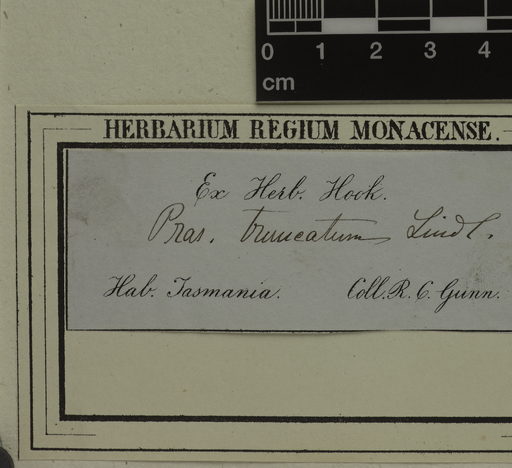 0 1 2 3 4
cm
HERBARIUM REGIUM MONACENSE.
Ex Herb. Hook.
Pras. truncatum Lindl.
Hab. Tasmania. Coll. R. C. Gunn.